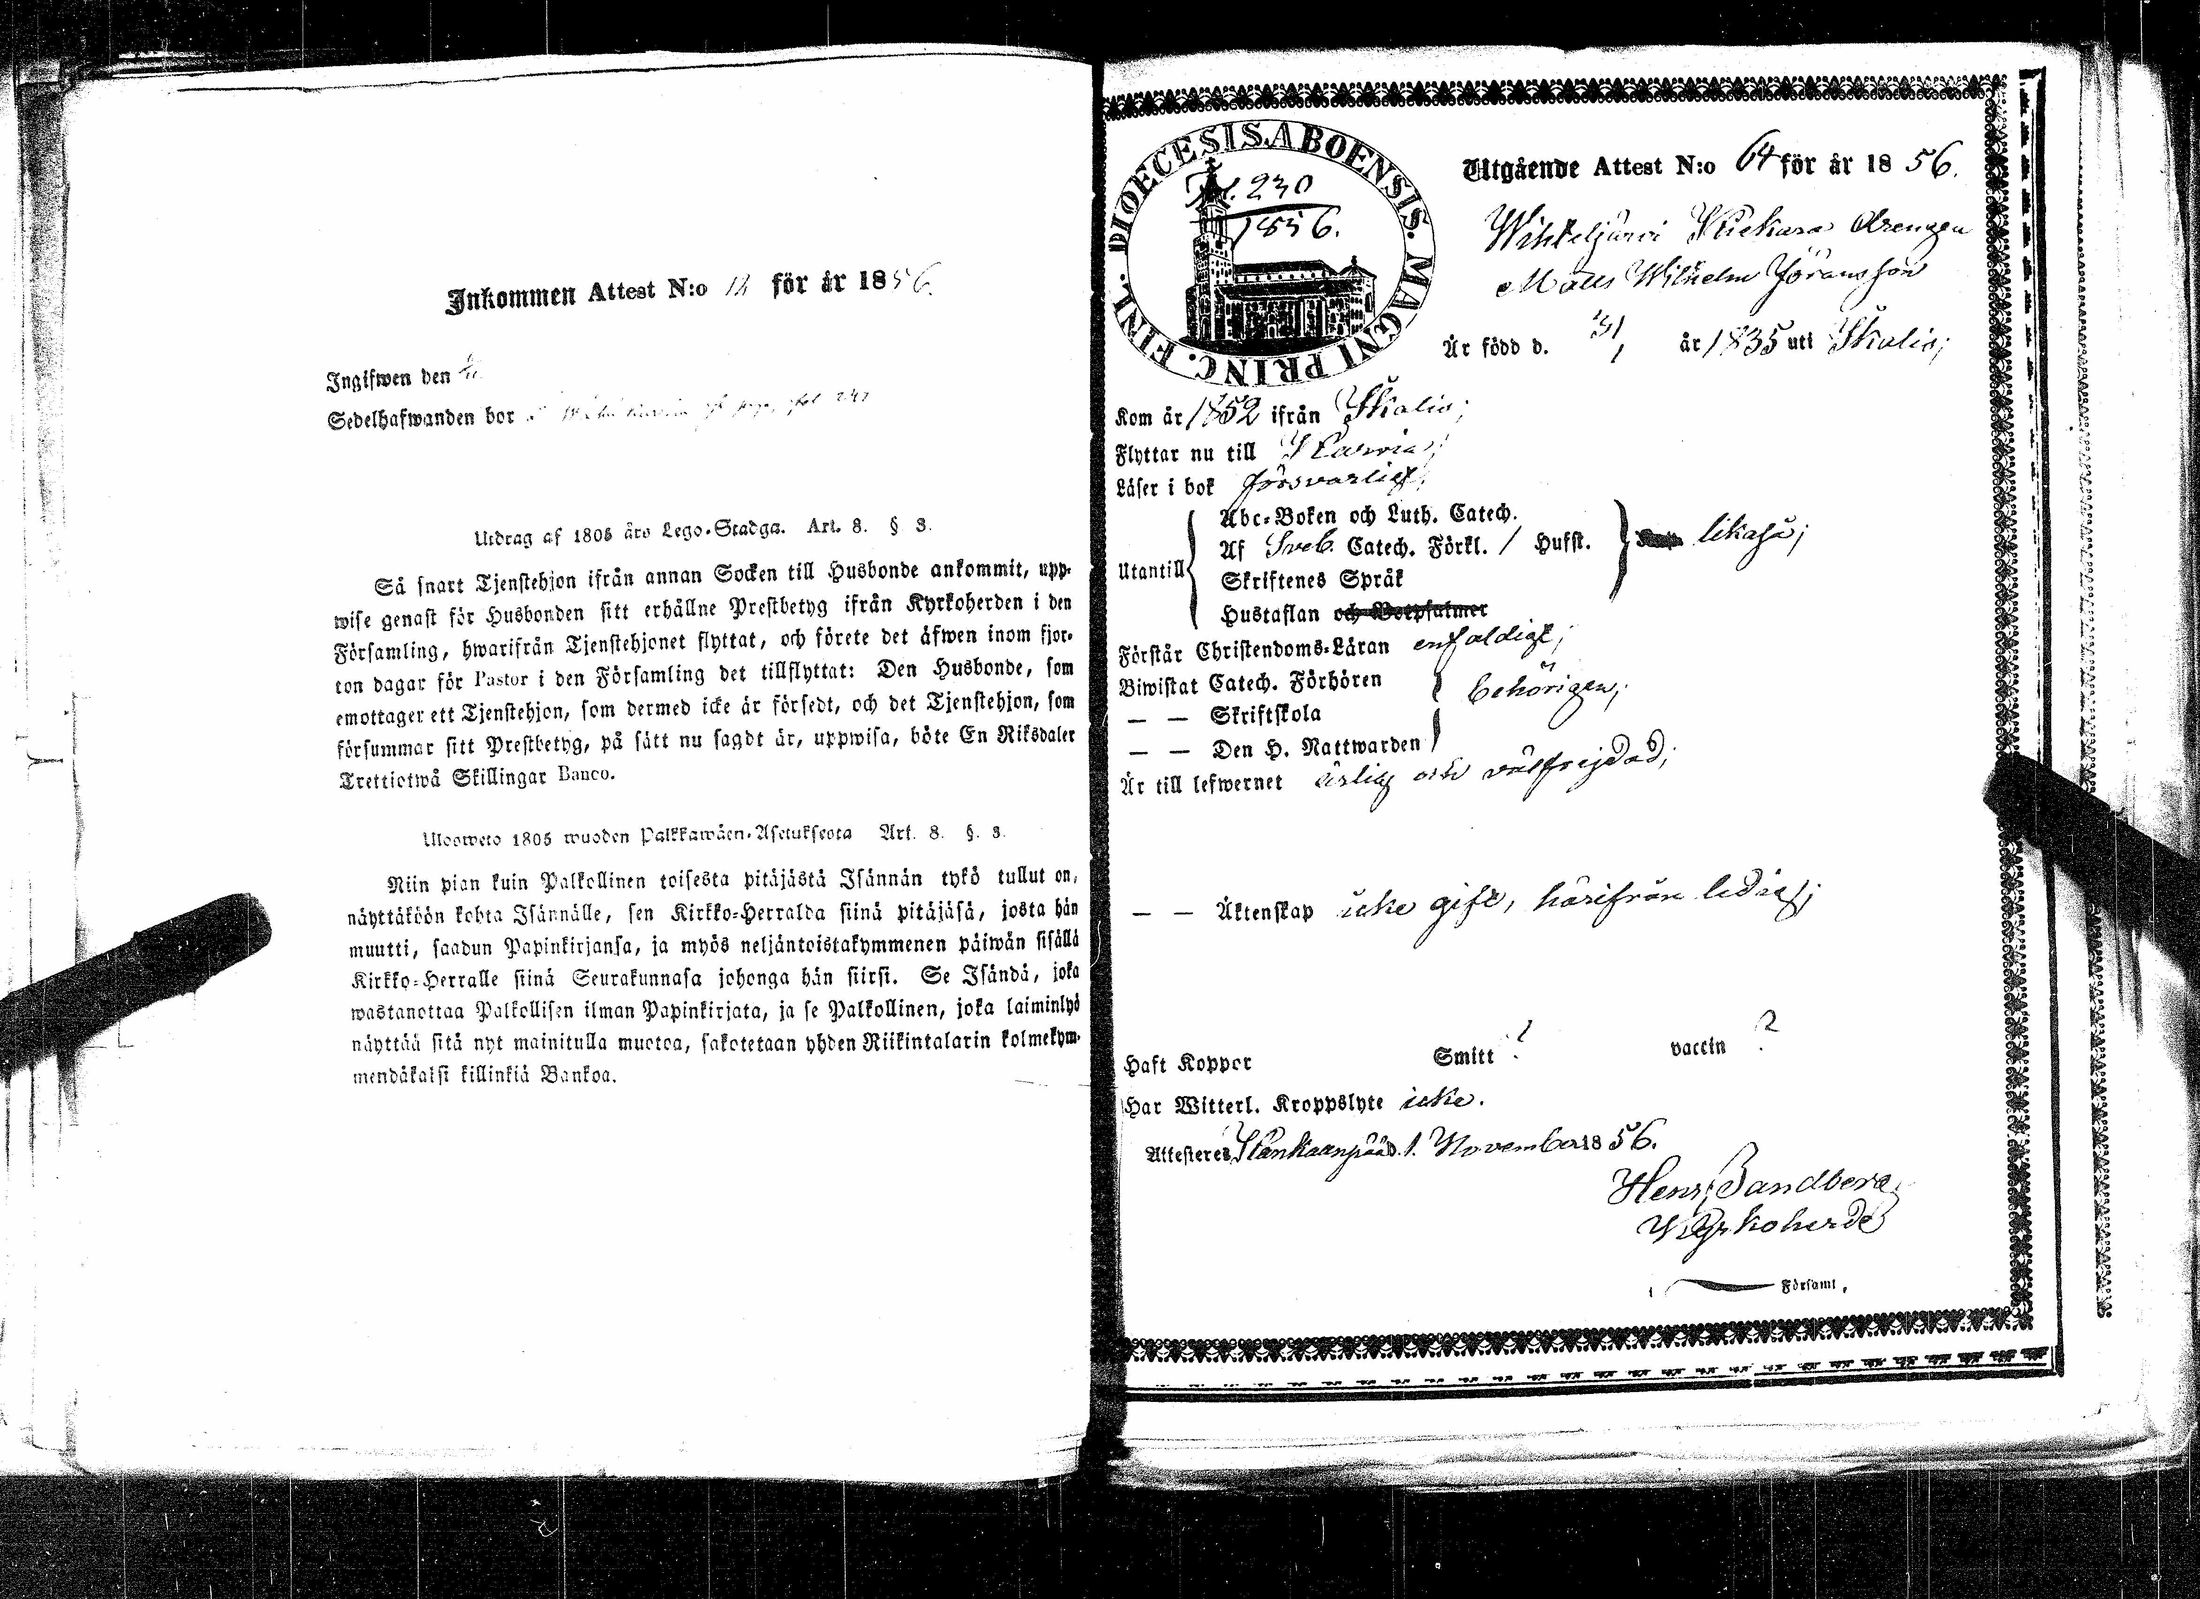 Inkommen Attest N:o 12 för år 1856.
Ingifwen den
Sedelhafwanden bor
Utdrag af 1805 års Lego-Stadga. Art. 8. § 3.
Så snart Tjenstehjon ifrån annan Socken till Husbonde ankommit, upp-
wise genast för Husbonden sitt erhållne Prestbetyg ifrån Kyrkoherden i den
Församling, hwarifrån Tjenstehjonet flyttat, och förete det äfwen inom fjor-
ton dagar för Pastor i den Församling det tillflyttat: Den Husbonde, som
emottager ett Tjenstehjon, som dermed icke är försedt, och det Tjenstehjon, som
försummar sitt Prestbetyg, på sätt nu sagdt är, uppwisa, böte En Riksdaler
Trettiotwå Skillingar Banco.
Ulosweto 1805 wuoden Palkkawäen-Asetuksesta Art. 8. §. 3.
Niin pian kuin Palkollinen toisesta pitäjästä Isännän tykö tullut on,
näyttäköön kohta Isännälle, sen Kirkko-Herralda siinä pitäjäsä, josta hän
muutti, saadun Papinkirjansa, ja myös neljäntoistakymmenen päiwän sisällä
Kirkko-Herralle siinä Seurakunnasa johonga hän siirsi. Se Isändä, joka
wastanottaa Palkollisen ilman Papinkirjata, ja se Palkollinen, joka laiminlyö
näyttää sitä nyt mainitulla muotoa, sakotetaan yhden Riikintalarin kolmekym-
mendäkaksi killinkiä Bankoa.
DIOECESIS.ABOENSIS. MAGNI PRINC. FINL.
230
1856.
Utgående Attest N:o 64 för år 1856.
Drengen
Matts Wilhelm Jöransson
Är född d. år 1835 uti Ikalis;
Kom år 1852 ifrån Ikalis;
Flyttar nu till Karvia;
Läser i bok försvarligt;
Utantill
Abc-Boken och Luth. Catech.
Af Sveb. Catech. Förkl. / Husst. likaså;
Skriftenes Språk
Hustaflan och Botpsalmer
Förstår Christendoms-Läran enfaldigt;
Biwistat Catech. Förhören behörigen;
— — Skriftskola
— — Den H. Nattwarden
Är till lefwernet ärlig och välfrejdad;
— — Äktenskap icke gift, härifrån ledig;
Haft Koppor Smitt ? vaccin ?
Har Witterl. Kroppslyte icke.
Attesteres Kankaanpää d. 1. November 1856.
Henr. Sandberg
Kyrkoherde
Församl.